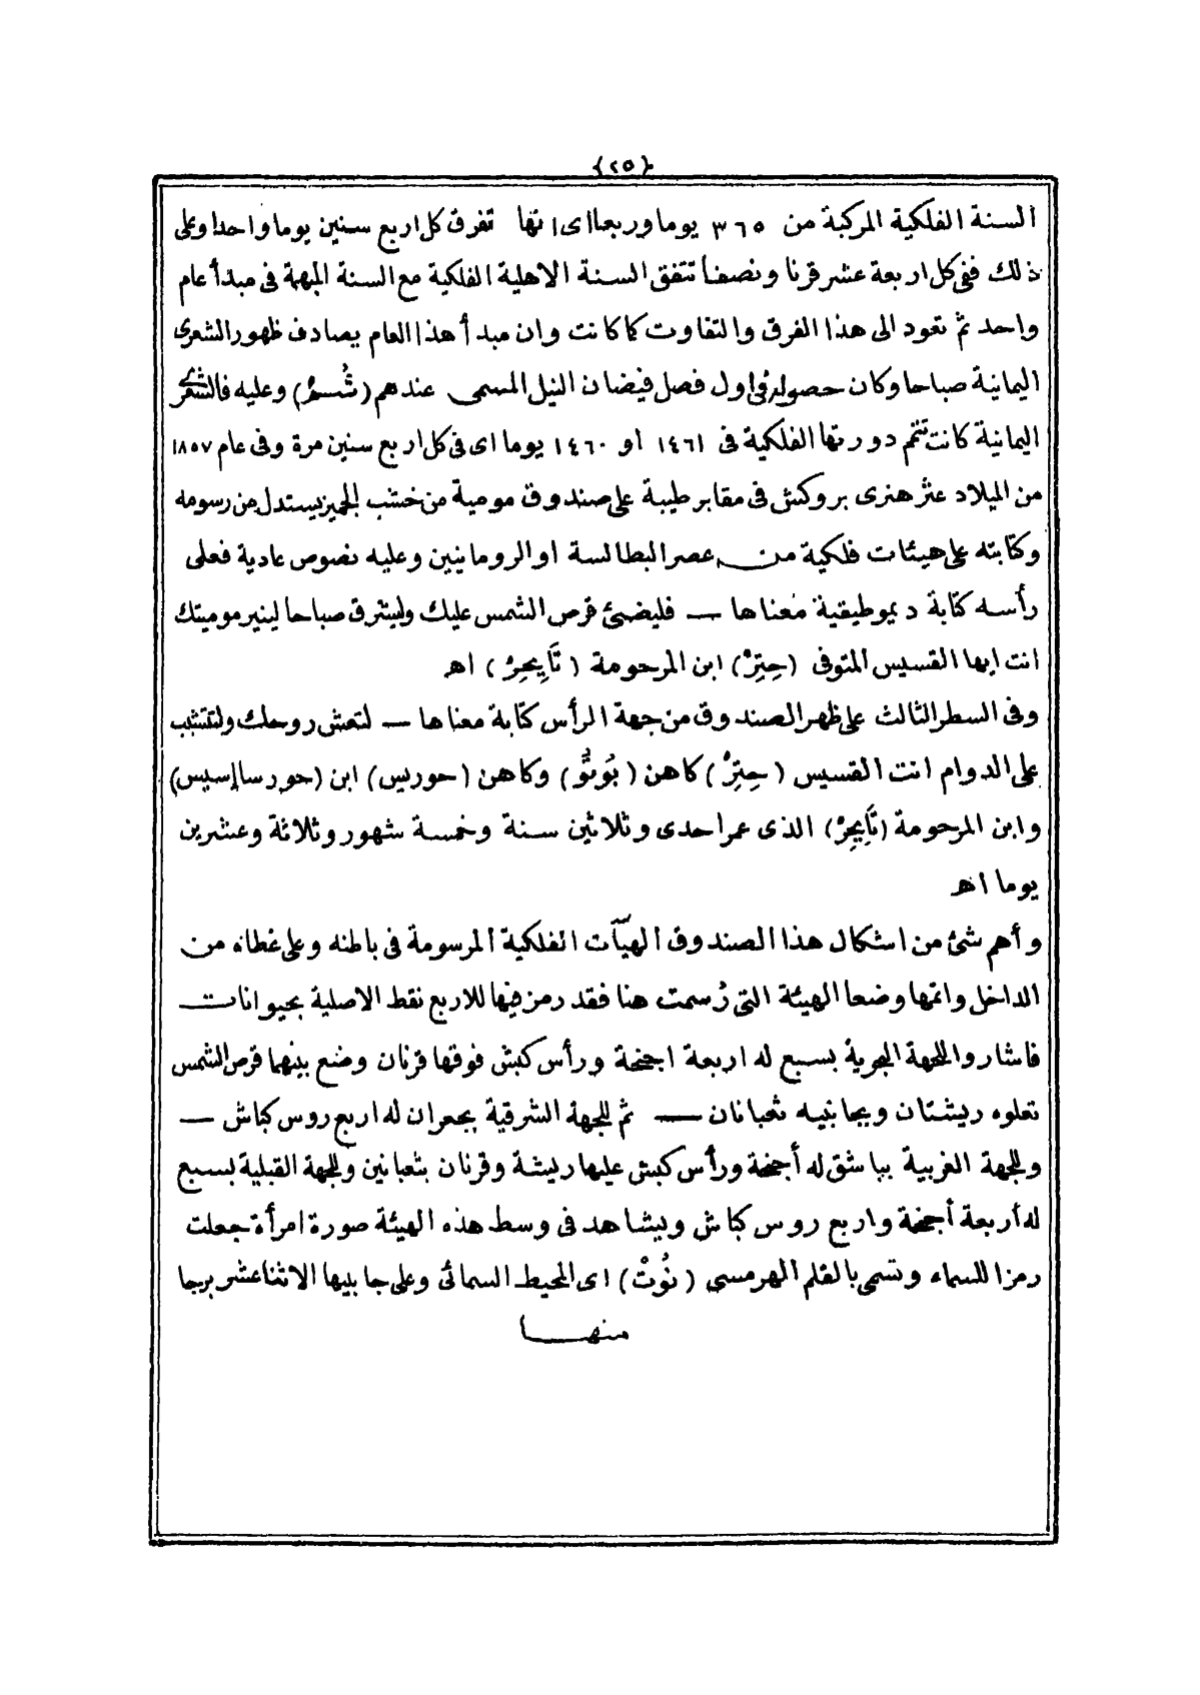 {٢٥}
السنة الفلكية المركبة من ٣٦٥ يوما وربعا اى انها تفرق كل اربع سنين يوما واحدا وعلى
ذلك ففى كل اربعة عشر قرنا ونصفا تتفق السنة الاهلية الفلكية مع السنة المبهمة فى مبدأ عام
واحد ثم تعود الى هذا الفرق والتفاوت كما كانت وان مبدأ هذا العام يصادف ظهور الشعرى
اليمانية صباحا وكان حصوله فى اول فصل فيضان النيل المسمى عندهم (شُسمُ) وعليه فالشعرى
اليمانية كانت تتم دورتها الفلكية فى ١٤٦١ او ١٤٦٠ يوما اى فى كل اربع سنين مرة وفى عام ١٨٥٧
من الميلاد عثر هنرى بروكش فى مقابر طيبة على صندوق مومية من خشب الجميز يستدل من رسومه
وكتابته على هيئات فلكية من عصر البطالسة او الرومانيين وعليه نصوص عادية فعلى
رأسه كتابة ديموطيقية معناها — فليضئ قرص الشمس عليك وليشرق صباحا لينير موميتك
انت ايها القسيس المتوفى (حِتِرْ) ابن المرحومة (تَايِحِرْ) اه
وفى السطر الثالث على ظهر الصندوق من جهة الرأس كتابة معناها — لتعش روحك ولتتشبب
على الدوام انت القسيس (حِتِرْ) كاهن (بُوتُو) وكاهن (حوريس) ابن (حورساإسيس)
وابن المرحومة (تَايِحِرْ) الذى عمر احدى وثلاثين سنة وخمسة شهور وثلاثة وعشرين
يوما اه
وأهم شئ من اشكال هذا الصندوق الهيآت الفلكية المرسومة فى باطنه وعلى غطائه من
الداخل واتمها وضعا الهيئة التى رُسمت هنا فقد رمز فيها للاربع نقط الاصلية بحيوانات
فاشاروا للجهة البحرية بسبع له اربعة اجنحة ورأس كبش فوقها قرنان وضع بينهما قرص الشمس
تعلوه ريشتان وبجانبيه ثعبانان — ثم للجهة الشرقية بجعران له اربع روس كباش —
وللجهة الغربية بباشق له أجنحة ورأس كبش عليها ريشة وقرنان بثعبانين وللجهة القبلية بسبع
له أربعة أجنحة واربع روس كباش ويشاهد فى وسط هذه الهيئة صورة امرأة جعلت
رمزا للسماء وتسمى بالقلم الهرمسى (نُوتْ) اى المحيط السمائى وعلى جانبيها الاثنا عشر برجا
منها